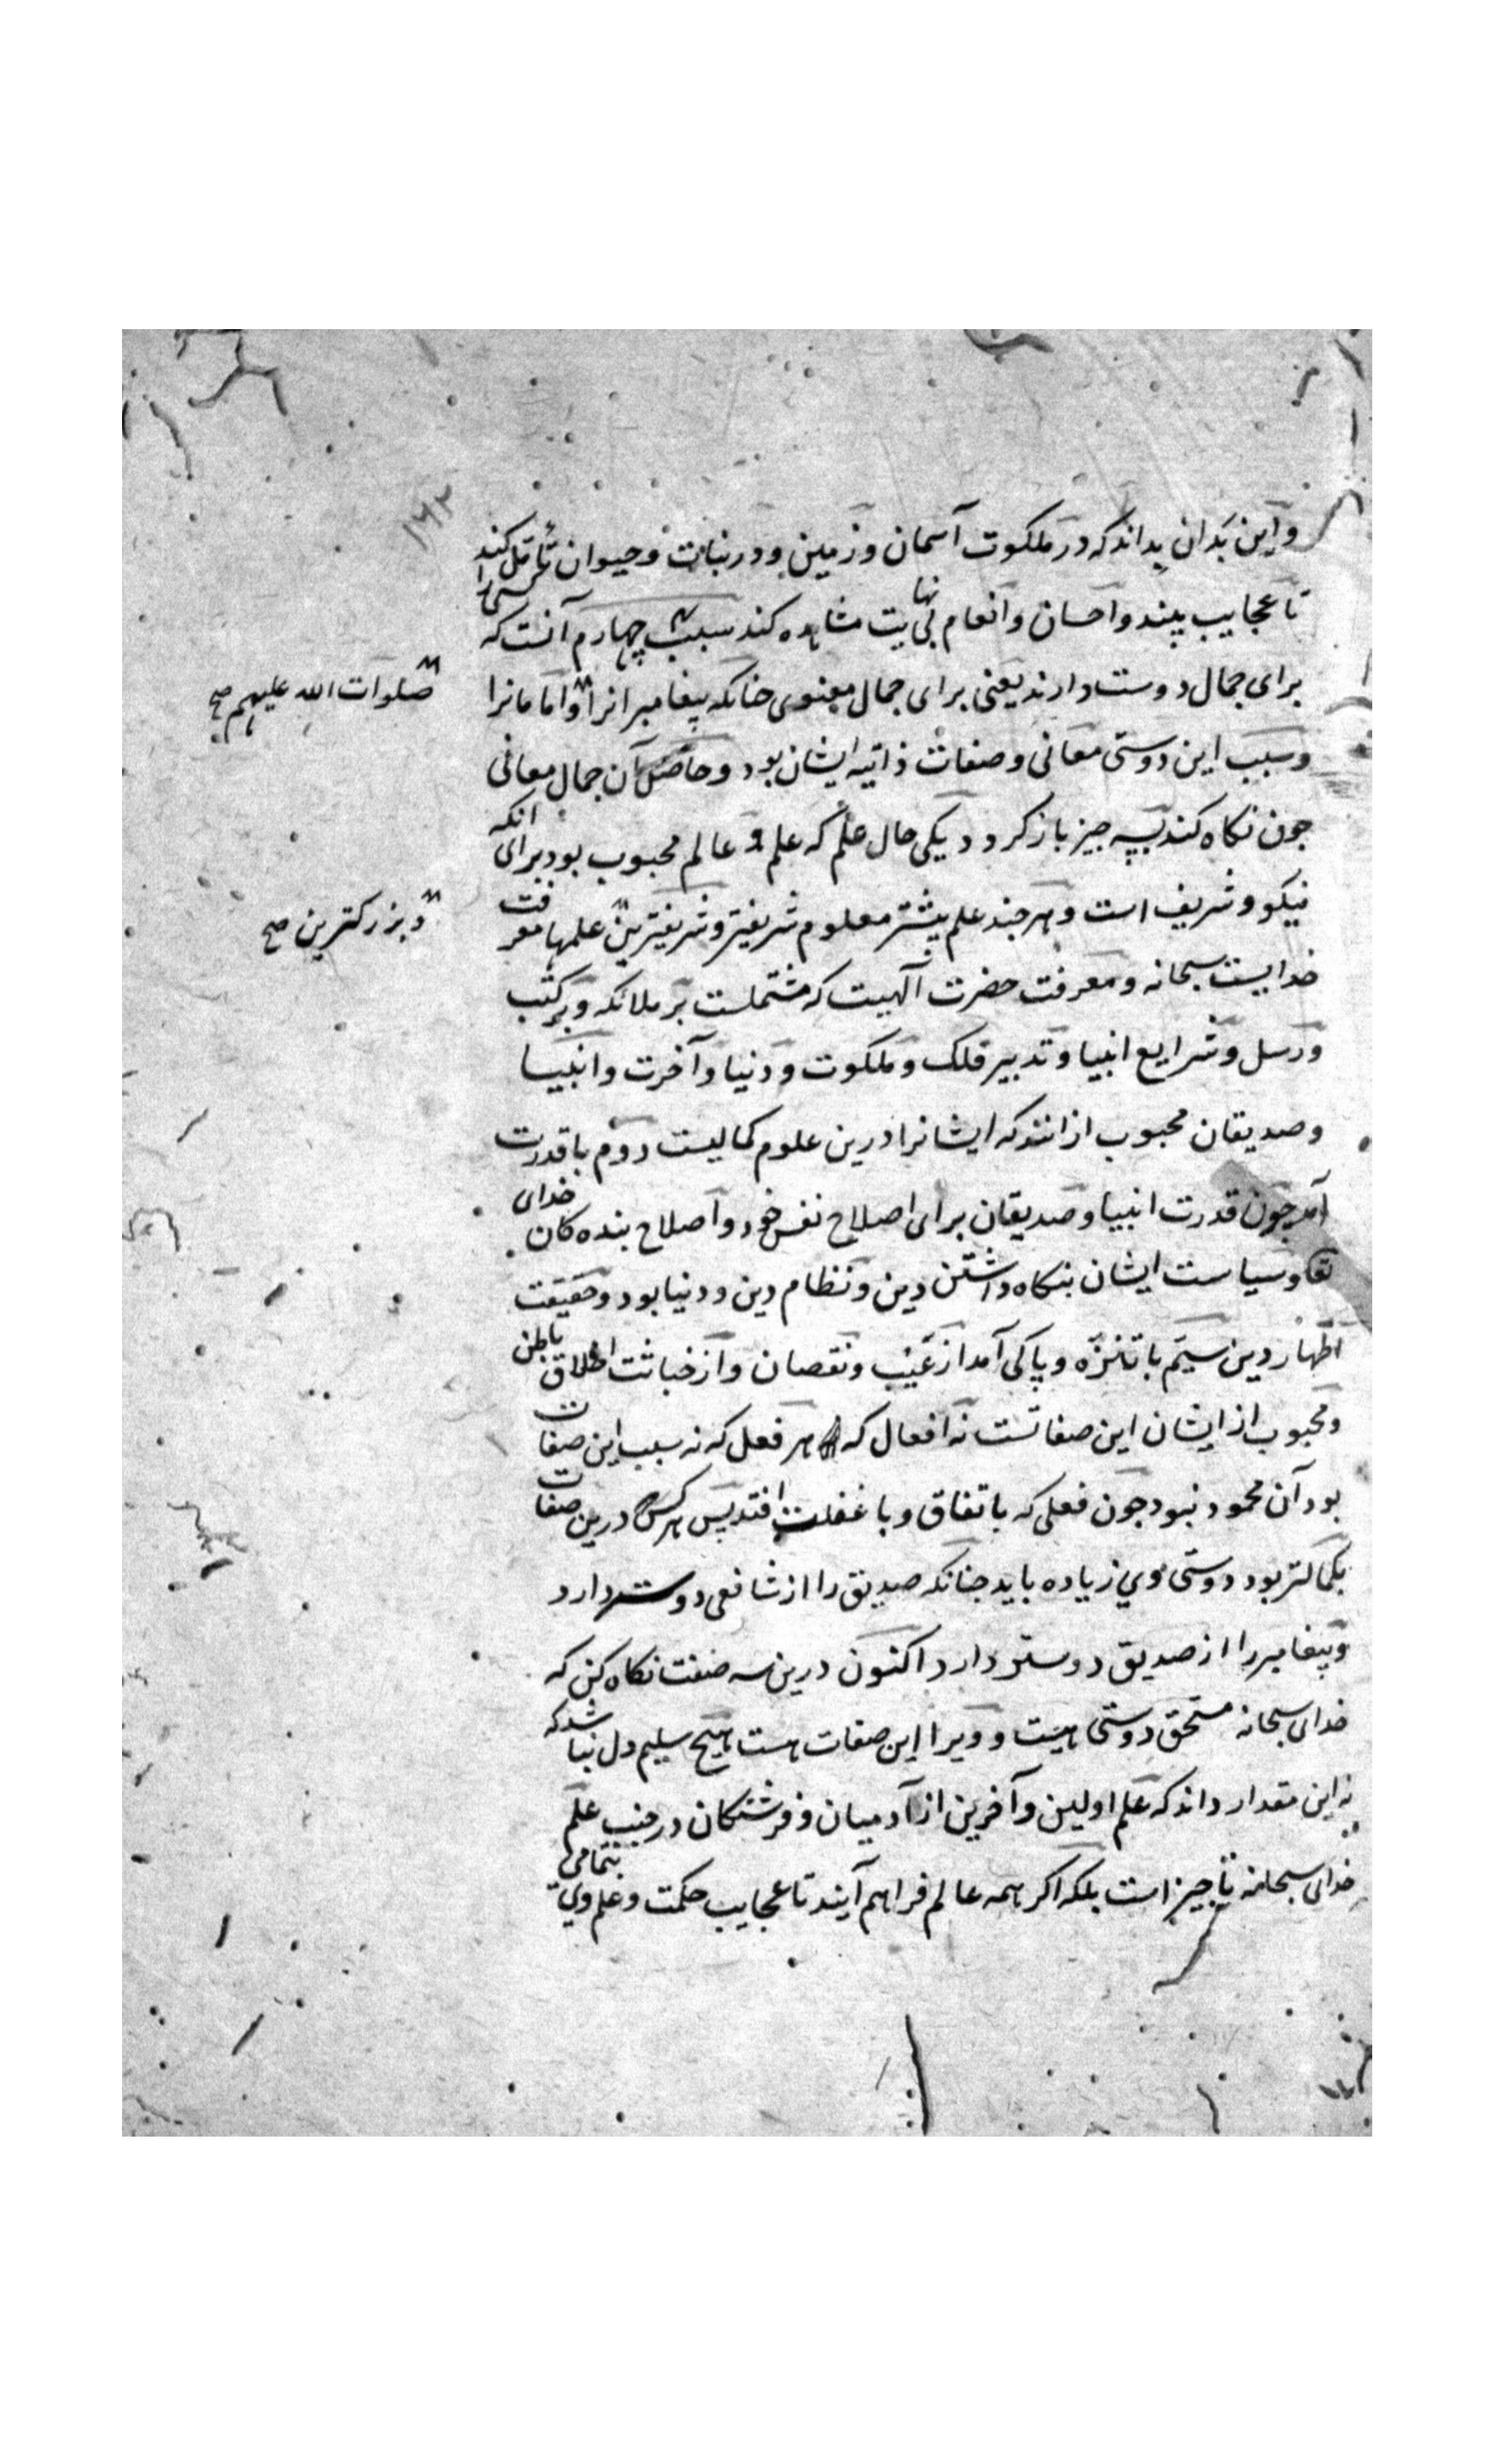 ۱۶۲
و این بدان بداند که در ملکوت آسمان و زمین و در نبات و حیوان تأمل کند
تا عجایب بیند و احسان و انعام بی نهایت مشاهده کند سبب چهارم آنست که کسی را
برای جمال دوست دارند یعنی برای جمال معنوی جنانکه پیغامبرانرا و امامانرا
صلوات الله علیهم صح
و سبب این دوستی معانی و صفات ذاتیه ایشان بود و حاصل آن جمال معانی
جون نکاه کند بسه جیز باز کردد یکی حال علم که علم و عالم محبوب بود برای انکه
نیکو و شریف است و هر جند علم بیشتر معلوم شریفتر و شریفترین علمها معرفت
و بزرکترین صح
خدایست سبحانه و معرفت حضرت آلهیت که مشتملست بر ملائکه و بر کتب
و رسل و شرایع انبیا و تدبیر فلک و ملکوت و دنیا و آخرت و انبیا
و صدیقان محبوب ازانند که ایشانرا درین علوم کمالیست دوم با قدرت
آمد جون قدرت انبیا و صدیقان برای اصلاح نفس خود و اصلاح بنده کان خدای
تعا و سیاست ایشان بنکاه داشتن دین و نظام دین و دنیا بود و حقیقت
اظهار دین سیم با تنزه و پاکی آمد از عیب و نقصان و از خباثت اخلاق باطن
و محبوب از ایشان این صفاتست نه افعال که هر فعل که نه سبب این صفات
بود آن محمود نبود جون فعلی که باتفاق و با غفلت افتد پس هر کس درین صفات
بکمالتر بود دوستی وی زیاده باید جنانکه صدیق را از شافعی دوستر دارد
و پیغامبر را از صدیق دوستر دارد اکنون درین سه صفت نکاه کن که
خدای سبحانه مستحق دوستی هست و ویرا این صفات هست هیچ سلیم دل نباشد که
نه این مقدار داند که علم اولین و آخرین از آدمیان و فرشتکان در جنب علم
خدای سبحانه ناجیز است بلکه اکر همه عالم فراهم آیند تا عجایب حکمت و علم وی بتمامی